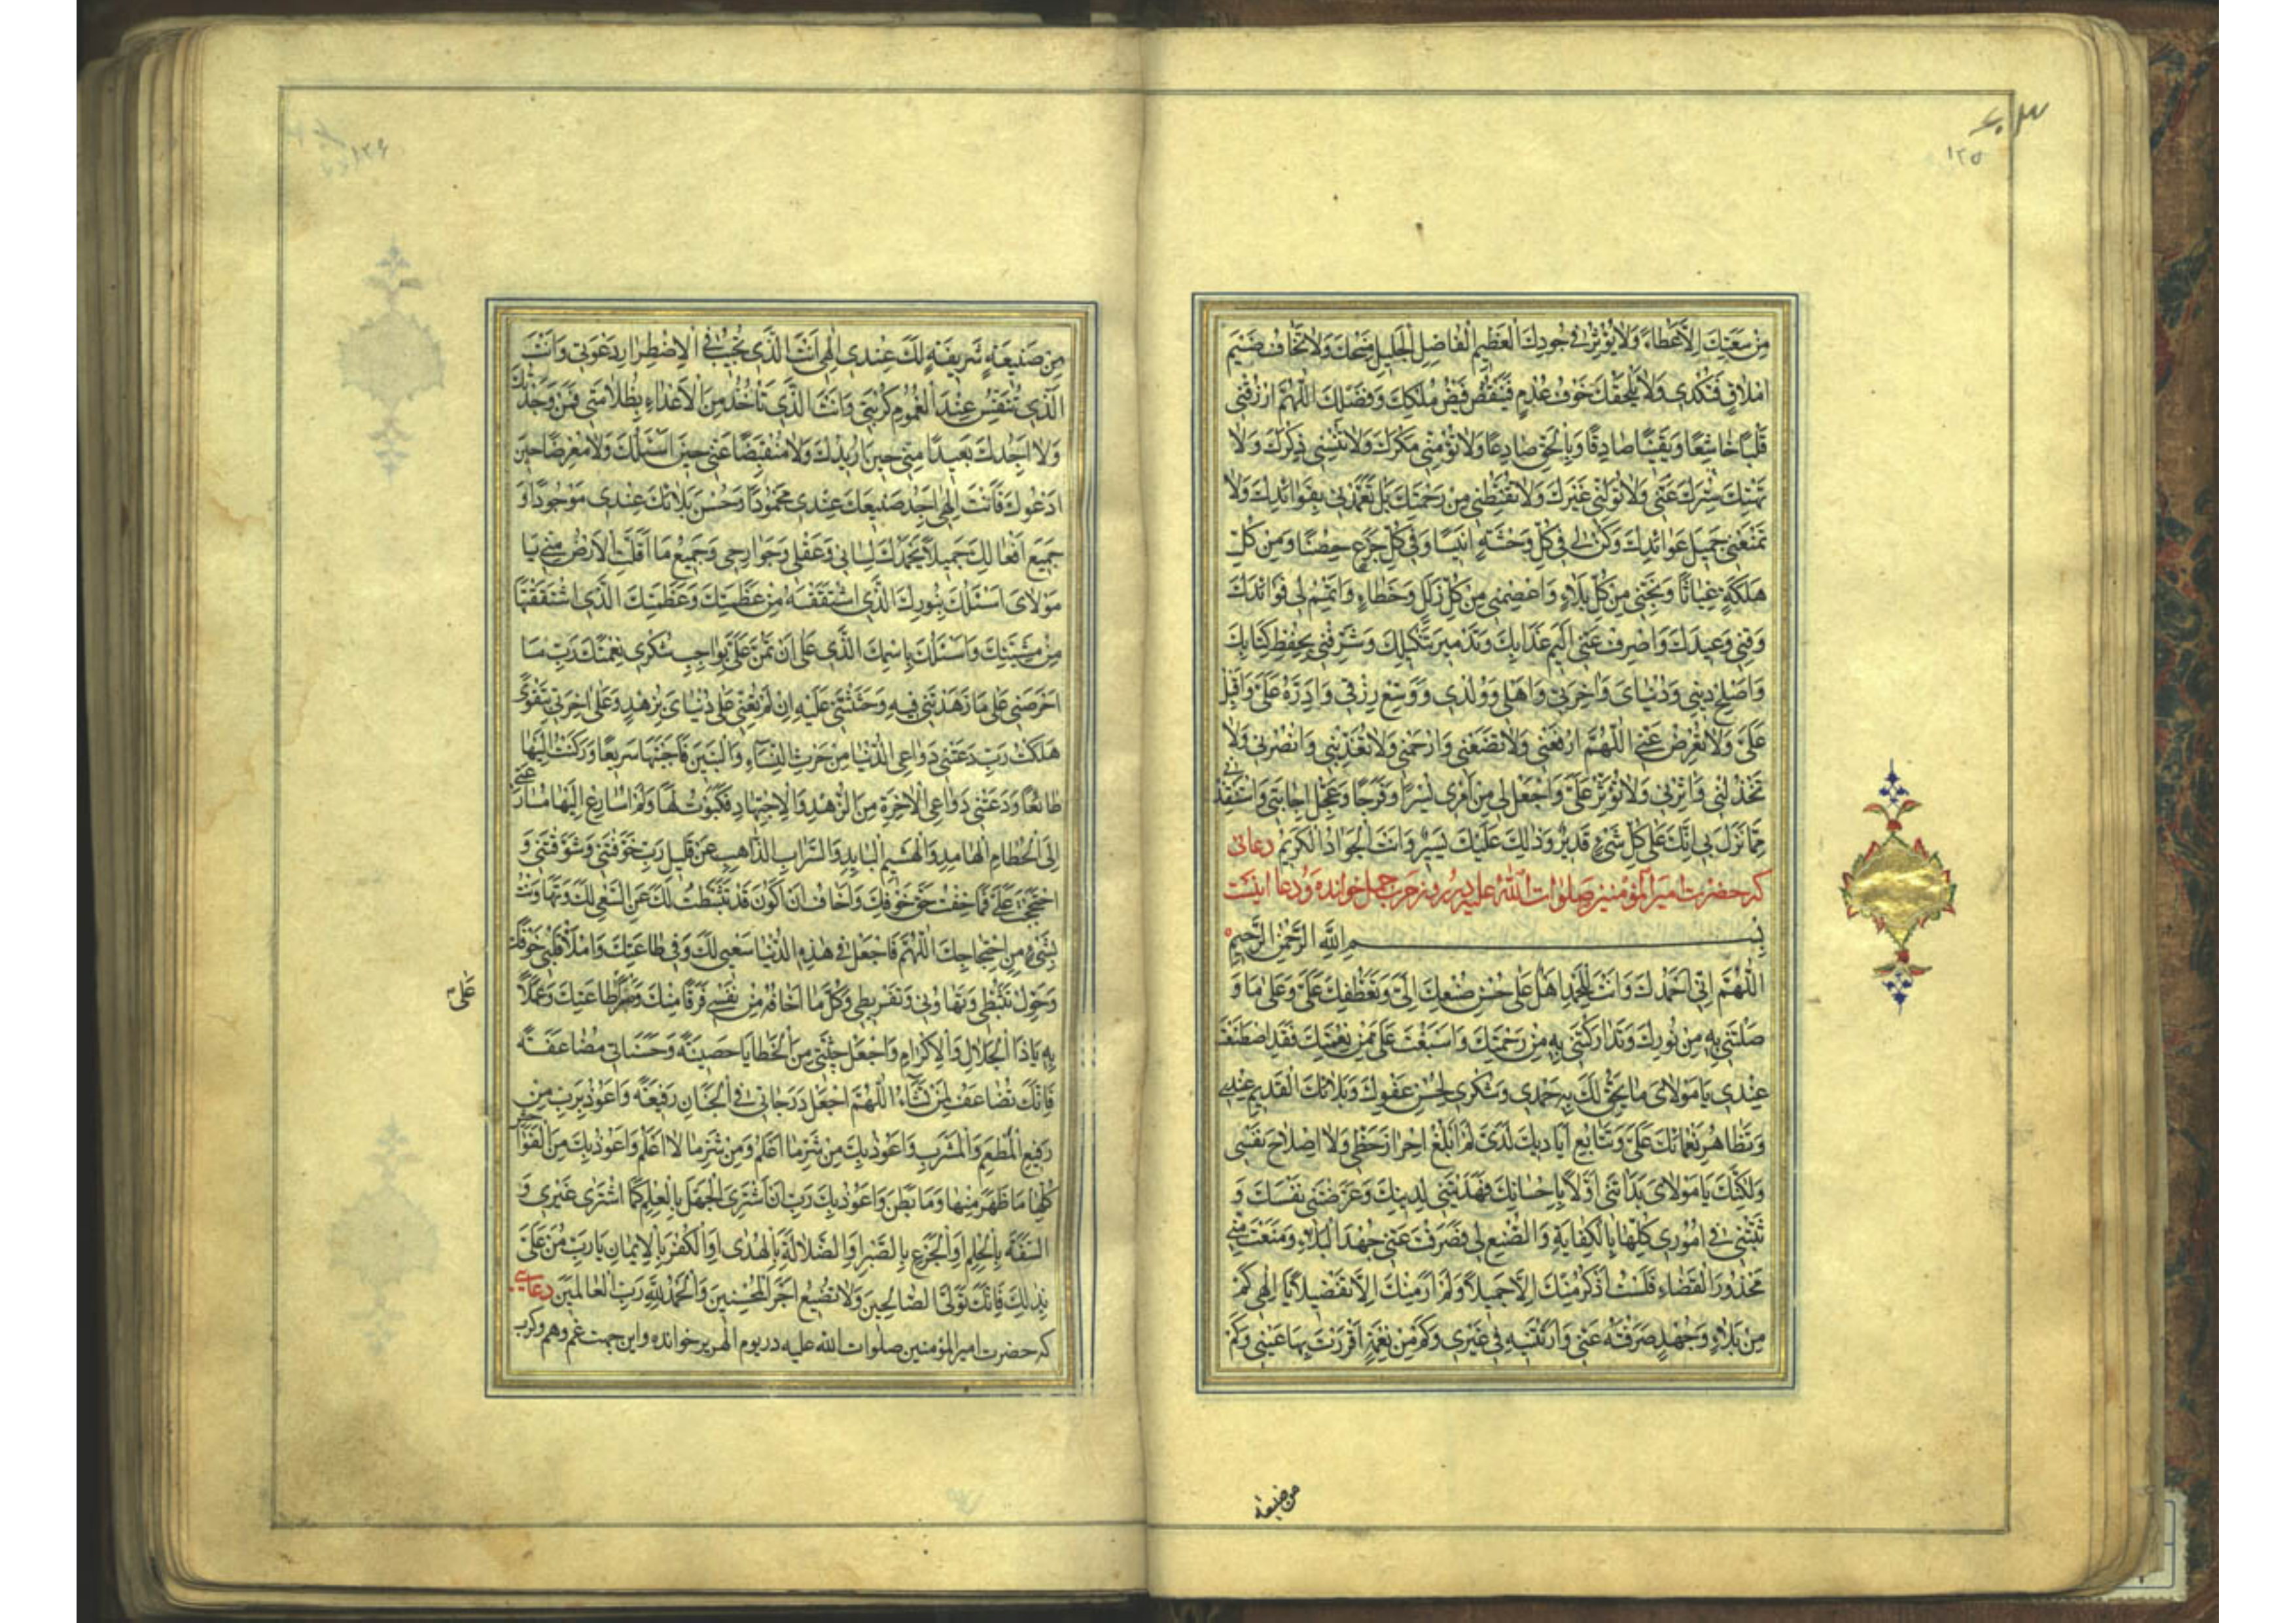 ۱۲۵
مِنْ سَعَتِكَ الْاَعْطَاءُ وَلَا يُؤَثِّرُ فِي جُودِكَ الْعَظِيمِ الْفَاضِلِ الْجَلِيلِ مِنَحُكَ وَلَا تَخَافُ ضَيْمَ
اِمْلَاقٍ فَتُكْدِيَ وَلَا يَلْحَقُكَ خَوْفُ عُدْمٍ فَيَنْقُصَ فَيْضُ مُلْكِكَ وَفَضْلِكَ اَللّٰهُمَّ ارْزُقْنِي
قَلْبًا خَاشِعًا وَيَقِينًا صَادِقًا وَبِالْحَقِّ صَادِعًا وَلَا تُؤْمِنِّي مَكْرَكَ وَلَا تُنْسِنِي ذِكْرَكَ وَلَا
تَهْتِكْ سِتْرَكَ عَنِّي وَلَا تُوَلِّنِي غَيْرَكَ وَلَا تُقَنِّطْنِي مِنْ رَحْمَتِكَ بَلْ تَغَمَّدْنِي بِفَوَائِدِكَ وَلَا
تَمْنَعْنِي جَمِيلَ عَوَائِدِكَ وَكُنْ لِي فِي كُلِّ وَحْشَةٍ اَنِيسًا وَفِي كُلِّ جَزَعٍ حِصْنًا وَمِنْ كُلِّ
هَلَكَةٍ غِيَاثًا وَنَجِّنِي مِنْ كُلِّ بَلَاءٍ وَاعْصِمْنِي مِنْ كُلِّ زَلَلٍ وَخَطَاءٍ وَتَمِّمْ لِي فَوَائِدَكَ
وَقِنِي وَعِيدَكَ وَاصْرِفْ عَنِّي اَلِيمَ عَذَابِكَ وَتَدْمِيرَ تَنْكِيلِكَ وَشَرِّفْنِي بِحِفْظِ كِتَابِكَ
وَاَصْلِحْ دِينِي وَدُنْيَايَ وَاٰخِرَتِي وَاَهْلِي وَوُلْدِي وَوَسِّعْ رِزْقِي وَاَدِرَّهُ عَلَيَّ وَاَقْبِلْ
عَلَيَّ وَلَا تُعْرِضْ عَنِّي اَللّٰهُمَّ ارْفَعْنِي وَلَا تَضَعْنِي وَارْحَمْنِي وَلَا تُعَذِّبْنِي وَانْصُرْنِي وَلَا
تَخْذُلْنِي وَاٰثِرْنِي وَلَا تُؤْثِرْ عَلَيَّ وَاجْعَلْ لِي مِنْ اَمْرِي يُسْرًا وَفَرَجًا وَعَجِّلْ اِجَابَتِي وَاسْتَنْقِذْنِي
مِمَّا نَزَلَ بِي اِنَّكَ عَلَى كُلِّ شَيْءٍ قَدِيرٌ وَذٰلِكَ عَلَيْكَ يَسِيرٌ وَاَنْتَ الْجَوَادُ الْكَرِيمُ دعائی
که حضرت امیر المؤمنین صلوات الله علیه در روز حرب جمل خوانده و دعا اینست
بِسْمِ اللهِ الرَّحْمٰنِ الرَّحِيمِ
اَللّٰهُمَّ اِنِّي اَحْمَدُكَ وَاَنْتَ لِلْحَمْدِ اَهْلٌ عَلَى حُسْنِ صُنْعِكَ اِلَيَّ وَتَعَطُّفِكَ عَلَيَّ وَعَلَى مَا وَ
صَلْتَنِي بِهِ مِنْ نُورِكَ وَتَدَارَكْتَنِي بِهِ مِنْ رَحْمَتِكَ وَاَسْبَغْتَ عَلَيَّ مِنْ نِعْمَتِكَ فَقَدِ اصْطَنَعْتَ
عِنْدِي يَا مَوْلَايَ مَا يَحِقُّ لَكَ بِهِ حَمْدِي وَشُكْرِي لِحُسْنِ عَفْوِكَ وَبَلَائِكَ الْقَدِيمِ عِنْدِي
وَتَظَاهُرِ نَعْمَائِكَ عَلَيَّ وَتَتَابُعِ اَيَادِيكَ لَدَيَّ لَمْ اَبْلُغْ اِحْرَازَ حَظِّي وَلَا اِصْلَاحَ نَفْسِي
وَلٰكِنَّكَ يَا مَوْلَايَ بَدَاْتَنِي اَوَّلًا بِاِحْسَانِكَ فَهَدَيْتَنِي لِدِينِكَ وَعَرَّفْتَنِي نَفْسَكَ وَ
ثَبَّتَّنِي فِي اُمُورِي كُلِّهَا بِالْكِفَايَةِ وَالصُّنْعِ لِي فَصَرَفْتَ عَنِّي جُهْدَ الْبَلَاءِ وَمَنَعْتَ مِنِّي
مَحْذُورَ الْقَضَاءِ فَلَسْتُ اَذْكُرُ مِنْكَ اِلَّا جَمِيلًا وَلَمْ اَرَ مِنْكَ اِلَّا تَفْضِيلًا يَا اِلٰهِي كَمْ
مِنْ بَلَاءٍ وَجُهْدٍ صَرَفْتَهُ عَنِّي وَاَرَيْتَنِيهِ فِي غَيْرِي وَكَمْ مِنْ نِعْمَةٍ اَقْرَرْتَ بِهَا عَيْنِي وَكَمْ
من صنیعة
۱۲۶
مِنْ صَنِيعَةٍ شَرِيفَةٍ لَكَ عِنْدِي اِلٰهِي اَنْتَ الَّذِي تُجِيبُ فِي الْاِضْطِرَارِ دَعْوَتِي وَاَنْتَ
الَّذِي تُنَفِّسُ عِنْدَ الْغُمُومِ كُرْبَتِي وَاَنْتَ الَّذِي تَاْخُذُ مِنَ الْاَعْدَاءِ بِظُلَامَتِي فَمَنْ وَجَدْتُكَ
وَلَا اَجِدُكَ بَعِيدًا مِنِّي حِينَ اُرِيدُكَ وَلَا مُنْقَبِضًا عَنِّي حِينَ اَسْئَلُكَ وَلَا مُعْرِضًا حِينَ
اَدْعُوكَ فَاَنْتَ اِلٰهِي اَجِدُ صَنِيعَكَ عِنْدِي مَحْمُودًا وَحُسْنَ بَلَائِكَ عِنْدِي مَوْجُودًا وَ
جَمِيعَ اَفْعَالِكَ جَمِيلًا يَحْمَدُكَ لِسَانِي وَعَقْلِي وَجَوَارِحِي وَجَمِيعُ مَا اَقَلَّتِ الْاَرْضُ مِنِّي يَا
مَوْلَايَ اَسْئَلُكَ بِنُورِكَ الَّذِي اشْتَقَقْتَهُ مِنْ عَظَمَتِكَ وَعَظَمَتِكَ الَّذِي اشْتَقَقْتَهَا
مِنْ مَشِيَّتِكَ وَاَسْئَلُكَ بِاسْمِكَ الَّذِي عَلَى اَنْ تَمُنَّ عَلَيَّ بِوَاجِبِ شُكْرِي نِعْمَتَكَ رَبِّ مَا
اَحْرَصَنِي عَلَى مَا زَهَّدْتَنِي فِيهِ وَحَثَثْتَنِي عَلَيْهِ اِنْ لَمْ تُعِنِّي عَلَى دُنْيَايَ بِزُهْدٍ وَعَلَى اٰخِرَتِي بِتَقْوًى
هَلَكْتُ رَبِّ دَعَتْنِي دَوَاعِي الدُّنْيَا مِنْ حَرْثِ النِّسَاءِ وَالْبَنِينَ فَاَجَبْتُهَا سَرِيعًا وَرَكَنْتُ اِلَيْهَا
طَائِعًا وَدَعَتْنِي دَوَاعِي الْاٰخِرَةِ مِنَ الزُّهْدِ وَالْاِجْتِهَادِ فَكَبَوْتُ لَهَا وَلَمْ اُسَارِعْ اِلَيْهَا مُسَارَعَتِي
اِلَى الْحُطَامِ الْهَامِدِ وَالْهَشِيمِ الْبَايِدِ وَالسَّرَابِ الذَّاهِبِ عَنْ قَلِيلٍ رَبِّ خَوَّفْتَنِي وَشَوَّقْتَنِي وَ
احْتَجَجْتَ عَلَيَّ فَمَا خِفْتُ حَقَّ خَوْفِكَ وَاَخَافُ اَنْ اَكُونَ قَدْ تَثَبَّطْتُ لَكَ عَنِ السَّعْيِ لَكَ وَتَهَاوَنْتُ
بِشَيْءٍ مِنِ احْتِجَاجِكَ اَللّٰهُمَّ فَاجْعَلْ فِي هٰذِهِ الدُّنْيَا سَعْيِي لَكَ وَفِي طَاعَتِكَ وَامْلَاْ قَلْبِي خَوْفَكَ
وَحَوِّلْ تَثَبُّطِي وَتَهَاوُنِي وَتَفْرِيطِي وَكُلَّ مَا اَخَافُهُ مِنْ نَفْسِي فَرَقًا مِنْكَ وَصَبْرًا طَاعَتِكَ وَعَمَلًا
علی
بِهِ يَا ذَا الْجَلَالِ وَالْاِكْرَامِ وَاجْعَلْ جُنَّتِي مِنَ الْخَطَايَا حَصِينَةً وَحَسَنَاتِي مُضَاعَفَةً
فَاِنَّكَ تُضَاعِفُ لِمَنْ تَشَاءُ اَللّٰهُمَّ اجْعَلْ دَرَجَاتِي فِي الْجِنَانِ رَفِيعَةً وَاَعُوذُ بِرَبِّ مِنْ
رَفِيعِ الْمَطْعَمِ وَالْمَشْرَبِ وَاَعُوذُ بِكَ مِنْ شَرِّ مَا اَعْلَمُ وَمِنْ شَرِّ مَا لَا اَعْلَمُ وَاَعُوذُ بِكَ مِنَ الْفَوَاحِشِ
كُلِّهَا مَا ظَهَرَ مِنْهَا وَمَا بَطَنَ وَاَعُوذُ بِكَ رَبِّ اَنْ اَشْتَرِيَ الْجَهْلَ بِالْعِلْمِ كَمَا اشْتَرَى غَيْرِي وَ
السَّفَهَ بِالْحِلْمِ اَوِ الْجَزَعَ بِالصَّبْرِ اَوِ الضَّلَالَةَ بِالْهُدَى اَوِ الْكُفْرَ بِالْاِيمَانِ يَا رَبِّ مُنَّ عَلَيَّ
بِذٰلِكَ فَاِنَّكَ تَوَلَّى الصَّالِحِينَ وَلَا تُضِيعُ اَجْرَ الْمُحْسِنِينَ وَالْحَمْدُ لِلّٰهِ رَبِّ الْعَالَمِينَ دعایی
که حضرت امیر المؤمنین صلوات الله علیه در یوم الهریر خوانده و این جهت غم و هم و کرب